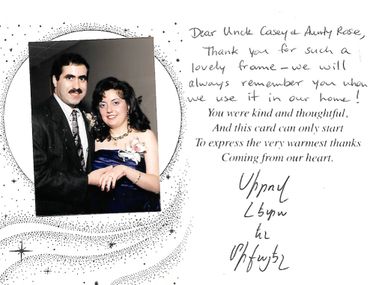 Dear Uncle Casey & Aunty Rose,
Thank you for such a
lovely frame – we will
always remember you when
we use it in our home!
You were kind and thoughtful,
And this card can only start
To express the very warmest thanks
Coming from our heart.